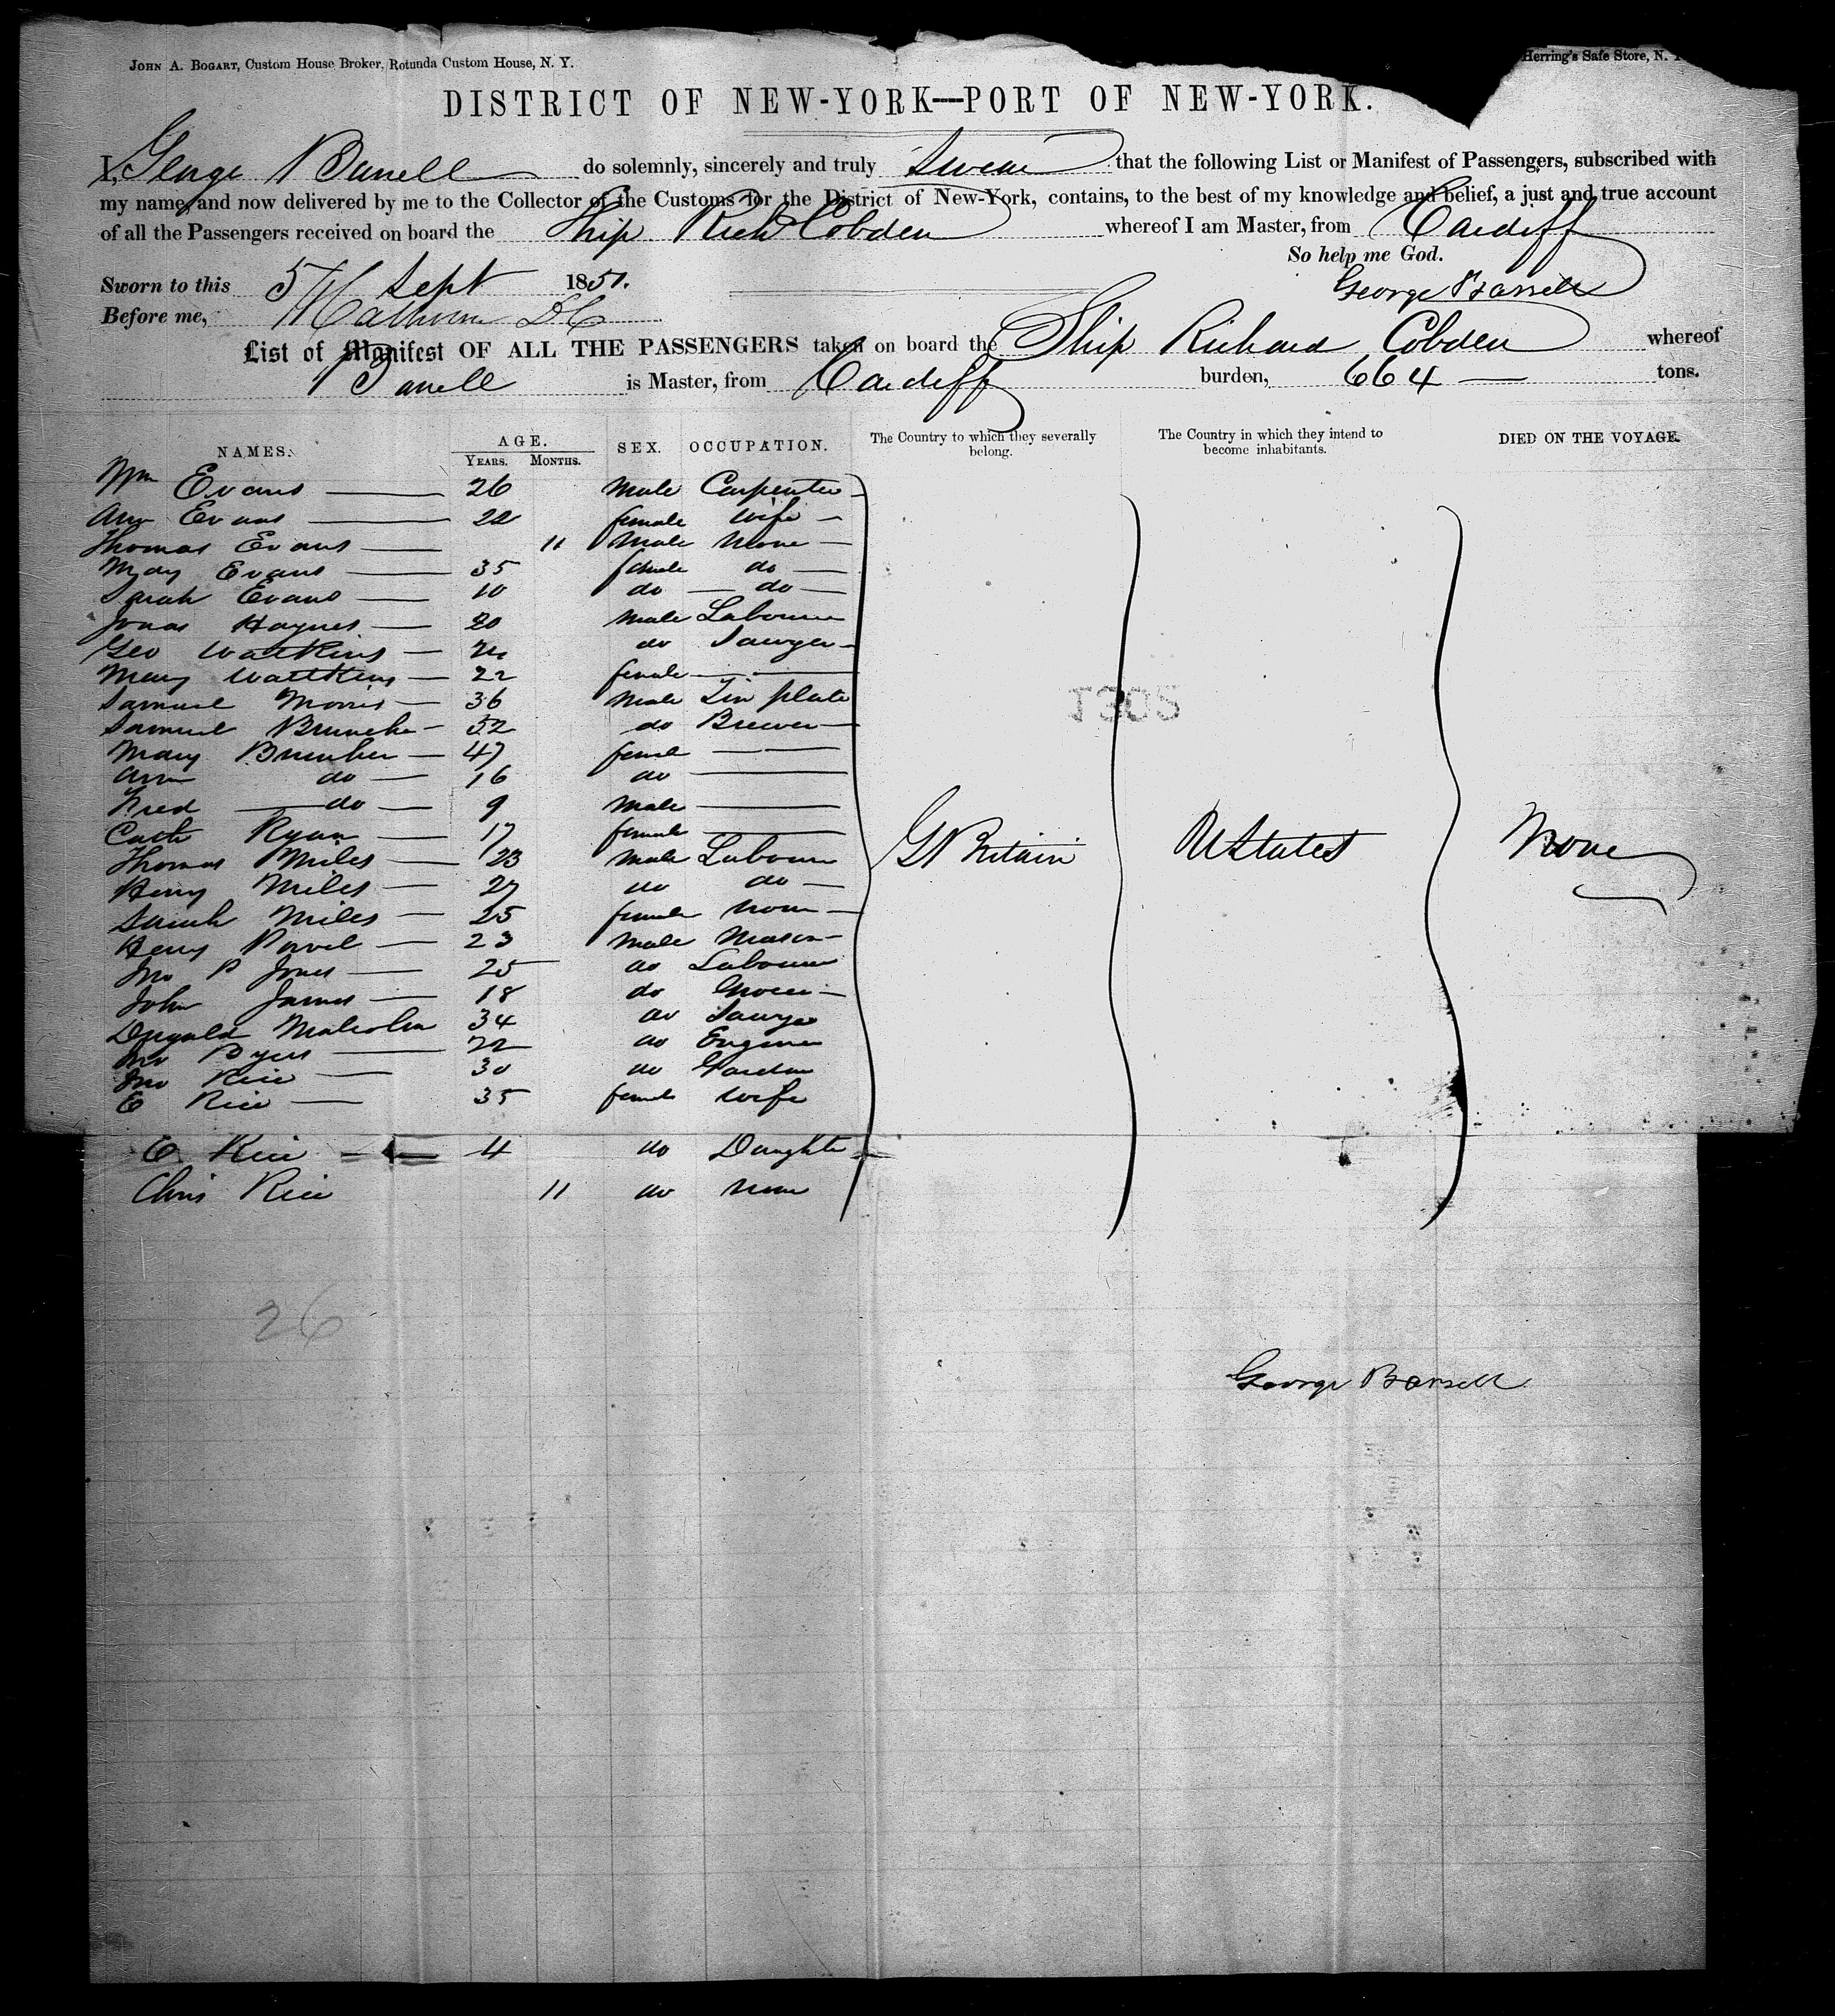 JOHN A. BOGART, Custom House Broker, Rotunda Custom House, N. Y.
Herring's Safe Store, N. Y.
DISTRICT OF NEW-YORK—PORT OF NEW-YORK.
I, George Barrell do solemnly, sincerely and truly swear that the following List or Manifest of Passengers, subscribed with
my name, and now delivered by me to the Collector of the Customs for the District of New-York, contains, to the best of my knowledge and belief, a just and true account
of all the Passengers received on board the Ship Richd Cobden whereof I am Master, from Cardiff
So help me God.
Sworn to this 5th Sept 1851. George Barrell
Before me, Calhoun DC
List of Manifest OF ALL THE PASSENGERS taken on board the Ship Richard Cobden whereof
Barrell is Master, from Cardiff burden, 664 — tons.
NAMES. AGE. YEARS. MONTHS. SEX. OCCUPATION. The Country to which they severally belong. The Country in which they intend to become inhabitants. DIED ON THE VOYAGE.
Wm Evans — 26 Male Carpenter —
Ann Evans — 22 female Wife —
Thomas Evans — 11 Male None —
Mary Evans — 35 female do —
Sarah Evans — 10 do — do —
Jonas Haynes — 20 Male Labourer
Geo Wattkins — do Sawyer —
Mary Wattkins — 22 female — —
Samuel Morris — 36 Male Tin plate
Samuel — 52 do Brewer —
Mary — 47 femal — —
Ann do — 16 do —
Fred — do — 9 Male —
Cath Ryan — 17 female —
Thomas Miles — 23 Male Labourer
Henry Miles — 27 do do —
Sarah Miles — 25 female None —
Henry Powel — 23 Male Mason —
Jno P Jones — 25 do Labourer
John James — 18 do Grocer —
Dugald Malcolm 34 do Sawyer
Jno Byers — 22 do Engineer
Jno Rice — 30 do Garden
E Rice — 35 female Wife
E Rice — 4 do Daughter
Chris Rice 11 do None
G Britain U States None
1302
26
George Barrell